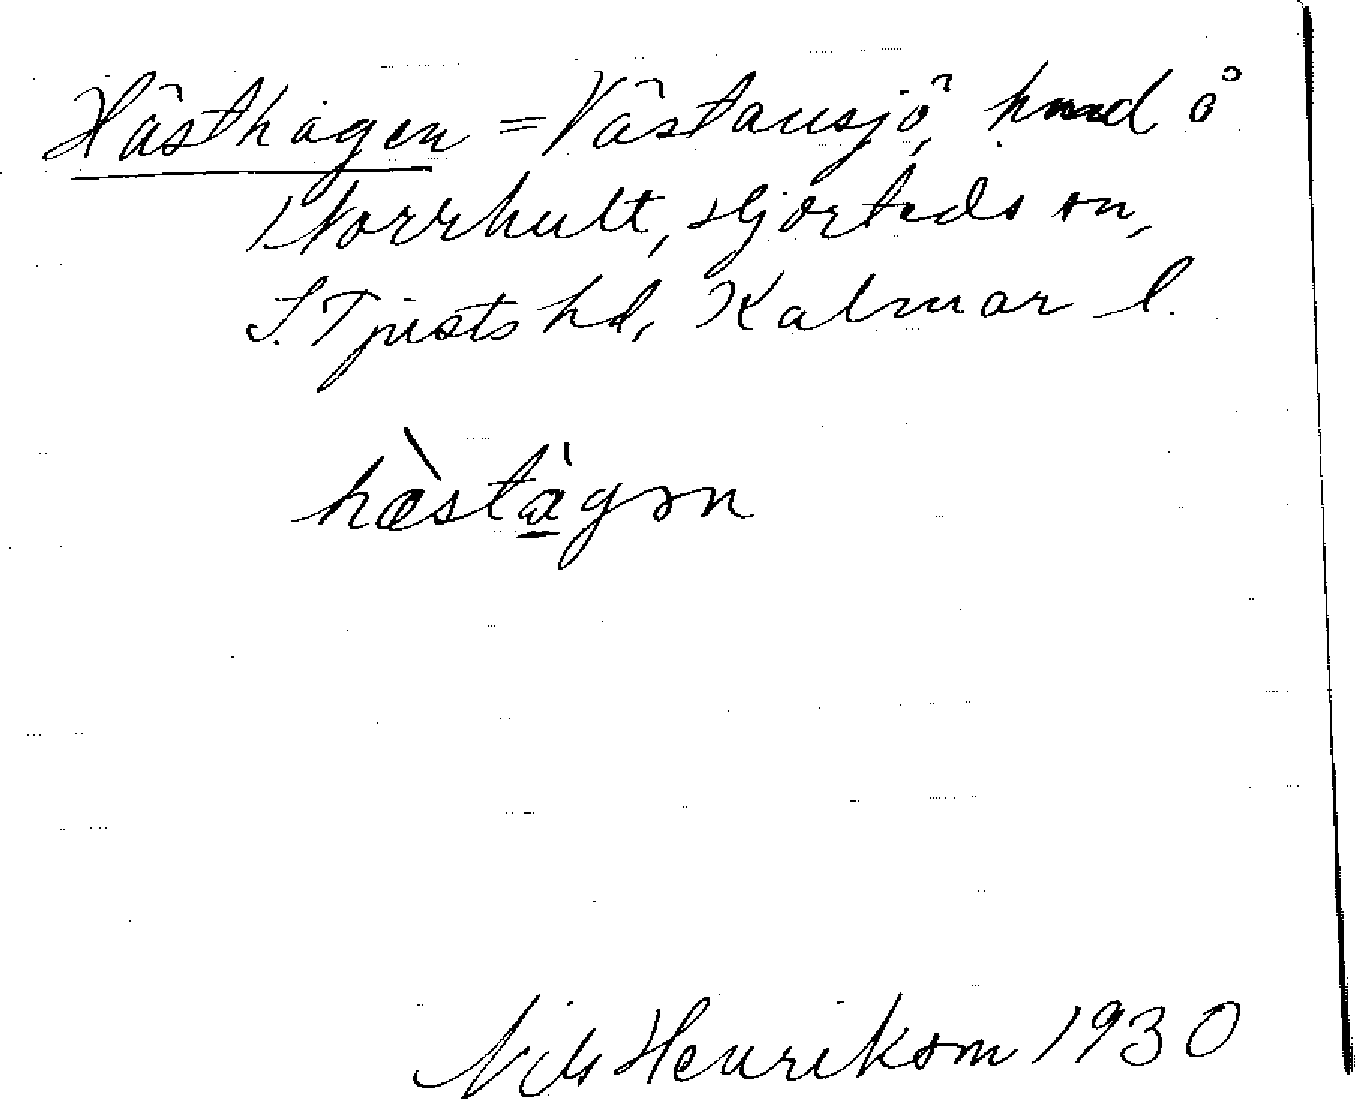 Hästhagen = Västansjö, hmd å
Norrhult, Hjorteds sn,
S. Tjusts hd, Kalmar l.
hæ̀stàgən
Nils Henrikson 1930